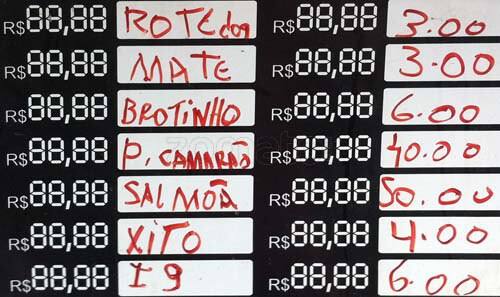 R$88,88 ROTEdog R$88,88 3.00
R$88,88 MATE R$88,88 3.00
R$88,88 BROTINHO R$88,88 6.00
R$88,88 P. CAMARÃO R$88,88 40.00
R$88,88 SALMÕA R$88,88 50.00
R$88,88 XITO R$88,88 4.00
R$88,88 I9 R$88,88 6.00